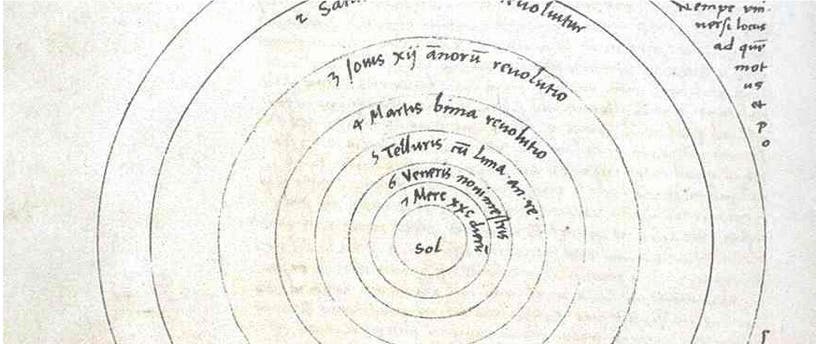 2 Satur revoluitur
3 Jovis xij ānorū revolutio
4 Martis bima revolutio
5 Telluris cū Luna an. re.
6 Veneris nonimestris
7 Merc xxc dierū
Sol
Nempe vni-
versi locus
ad quē
mot
us
et
p
o